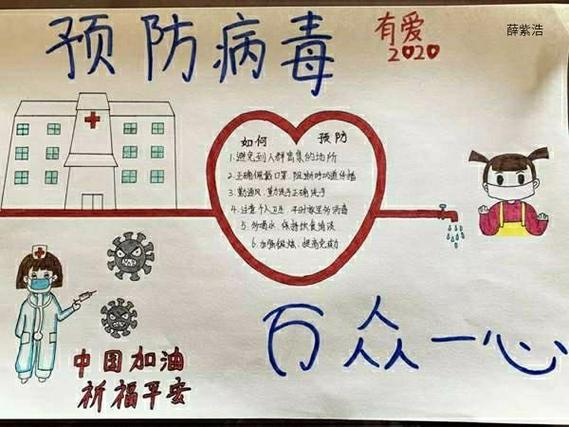 预防病毒
有爱
2020
薛紫浩
如何 预防
1.避免到人群密集的场所
2.正确佩戴口罩,阻断呼吸道传播
3.勤通风,勤洗手正确洗手
4.注意个人卫生
5.多喝水,保持饮食清淡
6.加强锻炼、提高免疫力
中国加油
祈福平安
万众一心